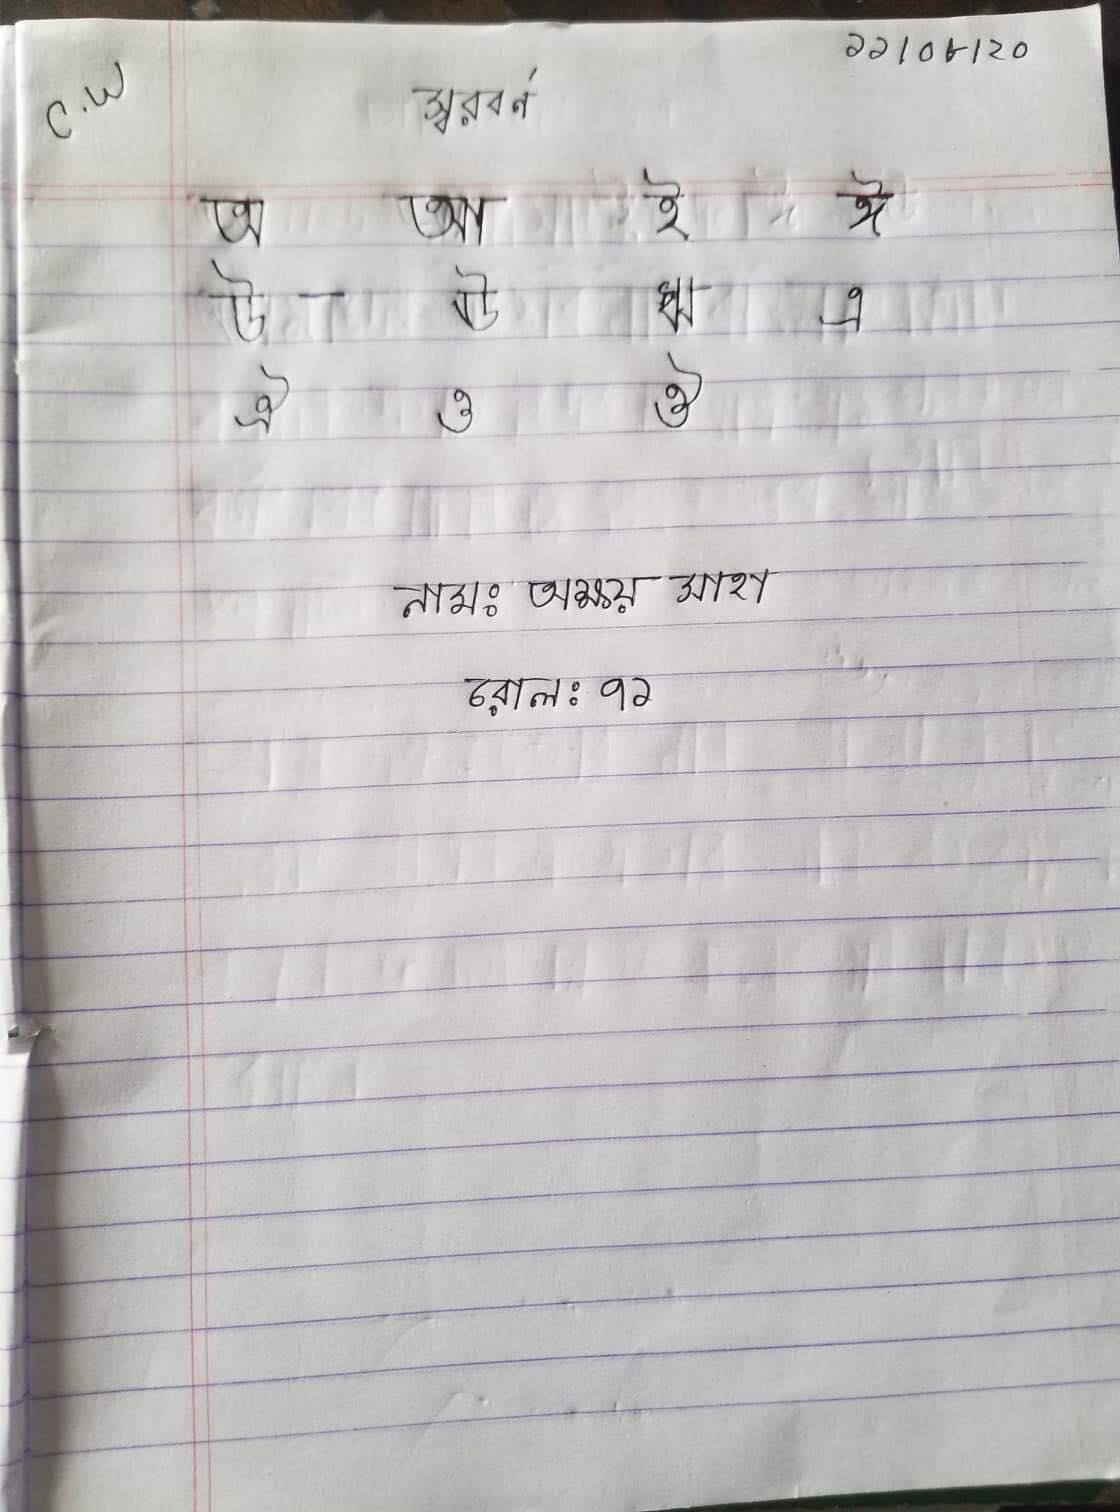 C.W
২২/০৮/২০
স্বরবর্ন
অ আ ই ঈ
উ ঊ ঋ এ
ঐ ও ঔ
নামঃ অক্ষয় সাহা
রোলঃ ৭১